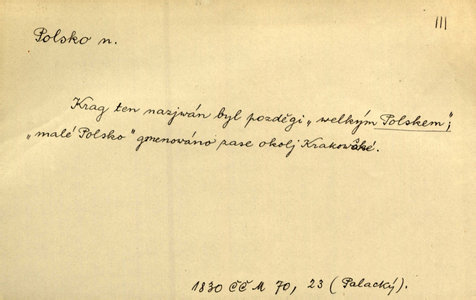 III
Polsko n.
Krag ten nazjwán byl pozděgi „welkým Polskem“;
„malé Polsko“ gmenováno zase okolj Krakowské.
1830 ČČM 70, 23 (Palacký).